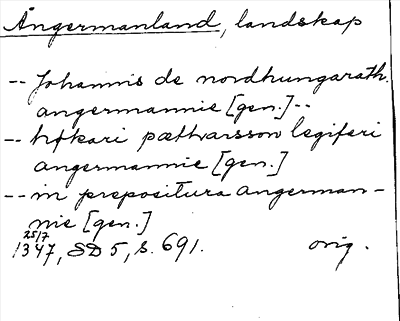 Ångermanland, landskap
-- Johannis de nordhungarath.
angermannie [gen.]--
-- høkari pæthrarsson legiferi
angermannie [gen.]
-- in prepositura angerman-
nie [gen.]
25/7
1347, SD 5, s. 691. orig.